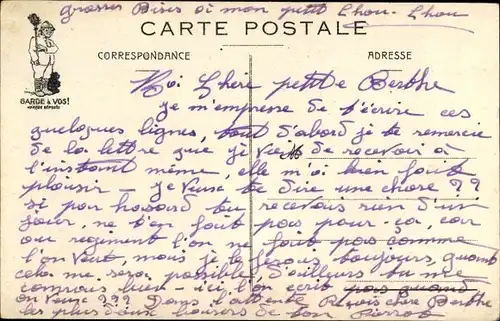 grosses Bises à mon petit Chou-Chou
CARTE POSTALE
CORRESPONDANCE
ADRESSE
GARDE A VOS!
MARQUE DÉPOSÉE
Chère petite Berthe
je m'empresse de t'écrire ces
quelques lignes, tout d'abord je te remercie
de la lettre que je viens de recevoir à
l'instant même, elle m'a bien fait
plaisir - je veux te dire une chose ??
si par hasard tu recevais rien d'un
jour, ne t'en fait pas pour ça, car
au regiment l'on ne fait pas comme
l'on veut, mais je le ferais toujours quand
cela me sera possible, d'ailleurs tu me
comprus bien - ici l'on ecrit pas quand
on veux ??? Dans l'attente Reçois chère Berthe
les plus doux baisers de ton Pierrot